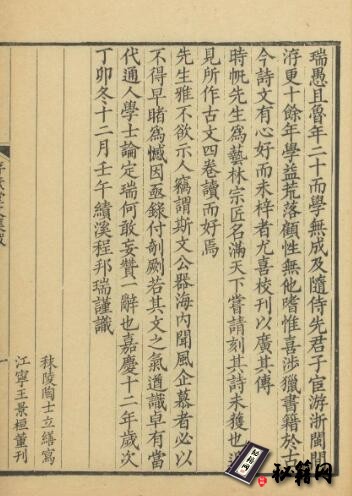 瑞愚且魯年二十而學無成及隨侍先君子宦游浙閩間
洊更十餘年學益荒落顧性無他嗜惟喜涉獵書籍於古
今詩文有心好而未梓者尤喜校刊以廣其傳
時帆先生為藝林宗匠名滿天下嘗請刻其詩未獲也
見所作古文四卷讀而好焉
先生雅不欲示人竊謂斯文公器海內聞風企慕者必以
不得早睹為憾因亟錄付剞劂若其文之氣道識卓有當
代通人學士論定瑞何敢妄贊一辭也嘉慶十二年歲次
丁卯冬十二月壬午績溪程邦瑞謹識
秣陵陶士立繕寫
江寧王景桓董刊
一
秘籍网
秘籍网